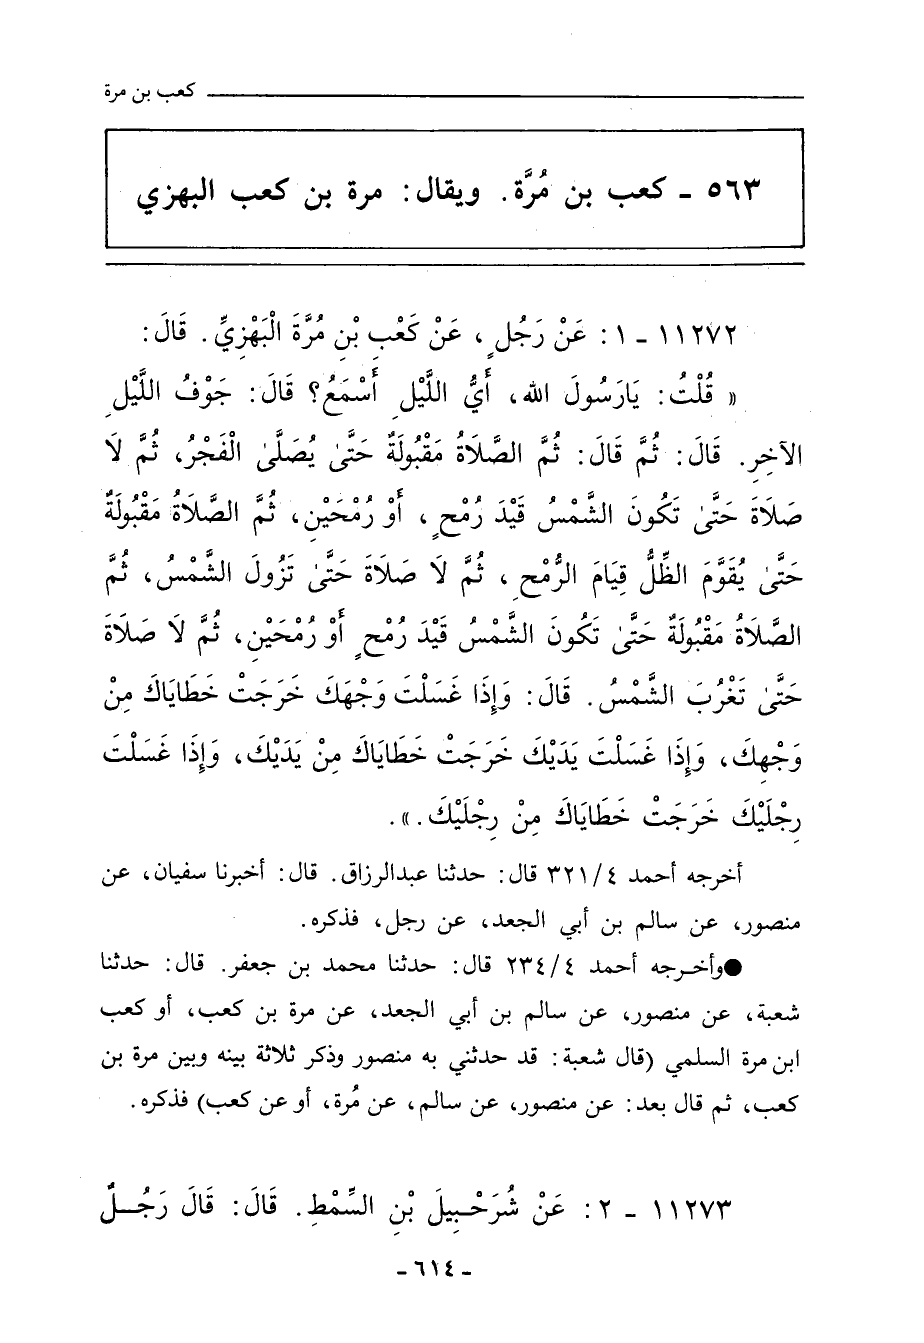 كعب بن مرة
٥٦٣ - كعب بن مُرَّة. ويقال: مرة بن كعب البهزي
١١٢٧٢ - ١: عَنْ رَجُلٍ، عَنْ كَعْبِ بْنِ مُرَّةَ الْبَهْزِيِّ. قَالَ:
« قُلْتُ: يَارَسُولَ الله، أَيُّ اللَّيْلِ أَسْمَعُ؟ قَالَ: جَوْفُ اللَّيْلِ
الآخِرِ. قَالَ: ثُمَّ قَالَ: ثُمَّ الصَّلَاةُ مَقْبُولَةٌ حَتَّىٰ يُصَلَّىٰ الْفَجْرُ، ثُمَّ لَا
صَلَاةَ حَتَّىٰ تَكُونَ الشَّمْسُ قَيْدَ رُمْحٍ، أَوْ رُمْحَيْنِ، ثُمَّ الصَّلَاةُ مَقْبُولَةٌ
حَتَّىٰ يُقَوَّمَ الظِّلُّ قِيَامَ الرُّمْحِ، ثُمَّ لَا صَلَاةَ حَتَّىٰ تَزُولَ الشَّمْسُ، ثُمَّ
الصَّلَاةُ مَقْبُولَةٌ حَتَّىٰ تَكُونَ الشَّمْسُ قَيْدَ رُمْحٍ أَوْ رُمْحَيْنِ، ثُمَّ لَا صَلَاةَ
حَتَّىٰ تَغْرُبَ الشَّمْسُ. قَالَ: وَإِذَا غَسَلْتَ وَجْهَكَ خَرَجَتْ خَطَايَاكَ مِنْ
وَجْهِكَ، وَإِذَا غَسَلْتَ يَدَيْكَ خَرَجَتْ خَطَايَاكَ مِنْ يَدَيْكَ، وَإِذَا غَسَلْتَ
رِجْلَيْكَ خَرَجَتْ خَطَايَاكَ مِنْ رِجْلَيْكَ.».
أخرجه أحمد ٣٢١/٤ قال: حدثنا عبدالرزاق. قال: أخبرنا سفيان، عن
منصور، عن سالم بن أبي الجعد، عن رجل، فذكره.
●وأخرجه أحمد ٢٣٤/٤ قال: حدثنا محمد بن جعفر. قال: حدثنا
شعبة، عن منصور، عن سالم بن أبي الجعد، عن مرة بن كعب، أو كعب
ابن مرة السلمي (قال شعبة: قد حدثني به منصور وذكر ثلاثة بينه وبين مرة بن
كعب، ثم قال بعد: عن منصور، عن سالم، عن مُرة، أو عن كعب) فذكره.
١١٢٧٣ - ٢: عَنْ شُرَحْبِيلَ بْنِ السِّمْطِ. قَالَ: قَالَ رَجُلٌ
- ٦١٤ -